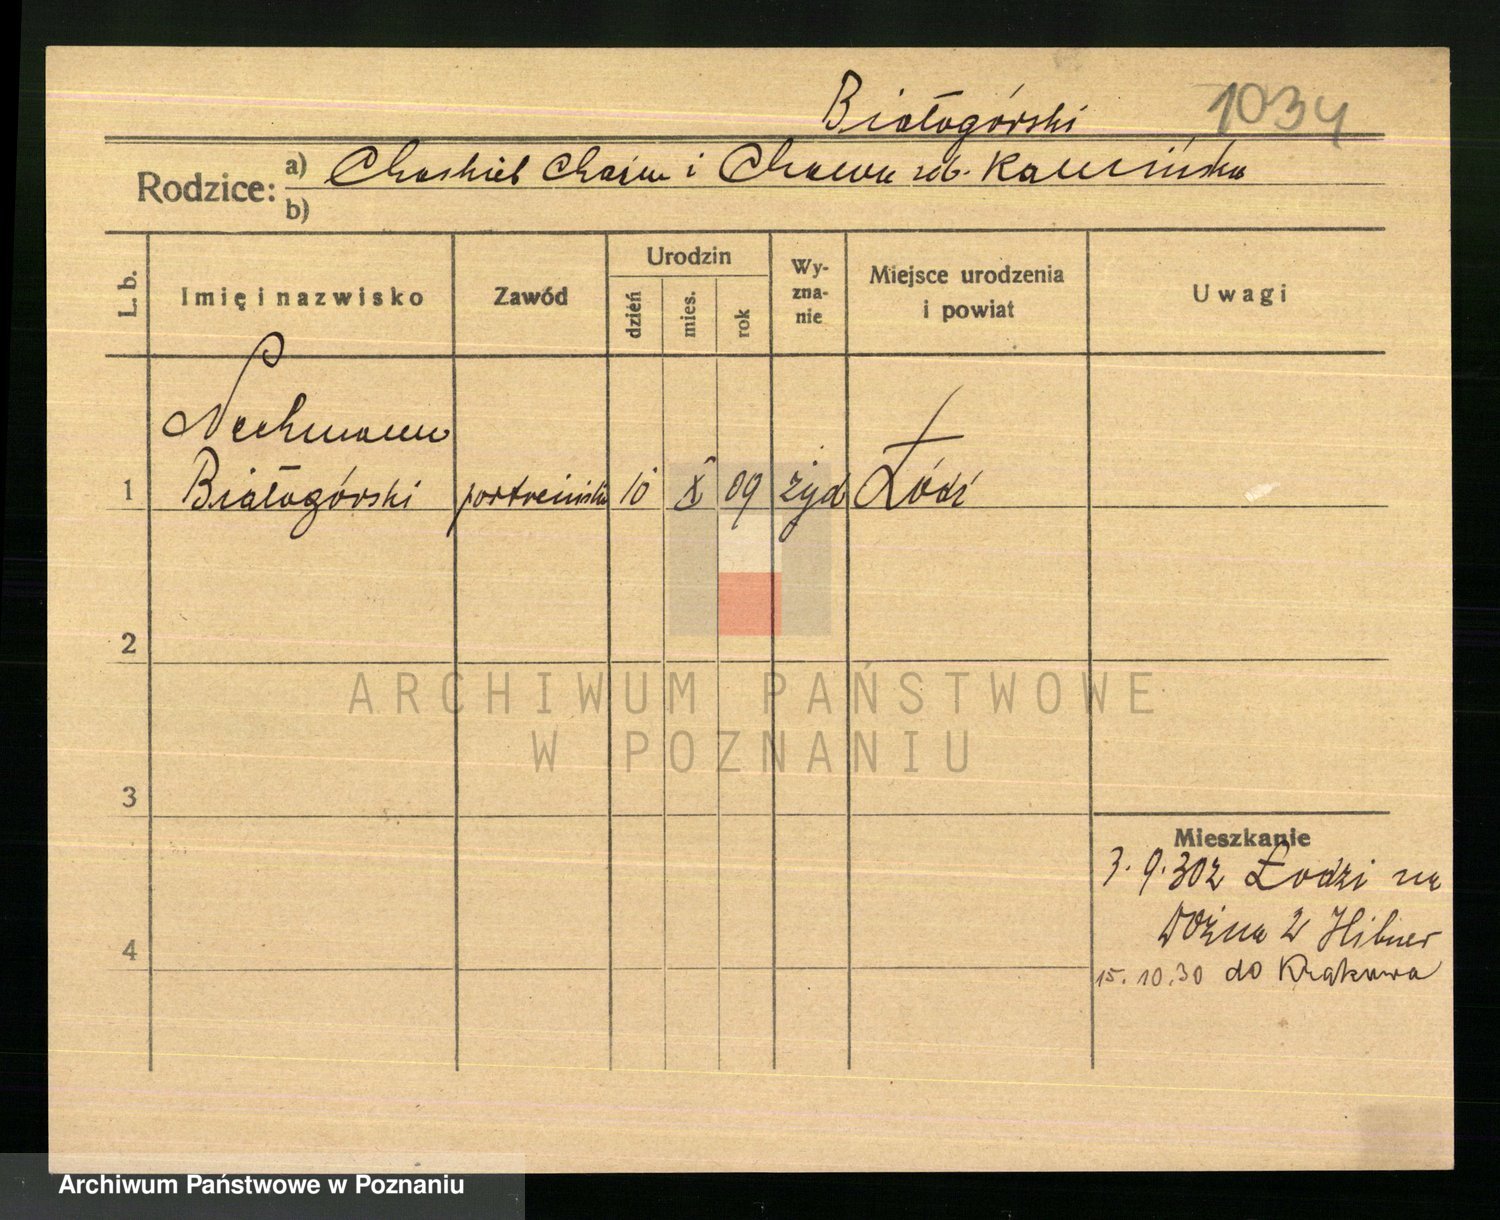 Białogórski 1034
Rodzice: a) Chaskiel Chaim i Chawa rob. Kamińska
b)
L. b. Imię i nazwisko Zawód Urodzin dzień mies. rok Wy-zna-nie Miejsce urodzenia i powiat Uwagi
Nachmann
1 Białogórski 10 X 09 żyd Łódź
2
3
Mieszkanie
3. 9. 30 z Łodzi na
Woźna 2 Hibner
4
15. 10. 30 do Krakowa
ARCHIWUM PAŃSTWOWE
W POZNANIU
Archiwum Państwowe w Poznaniu